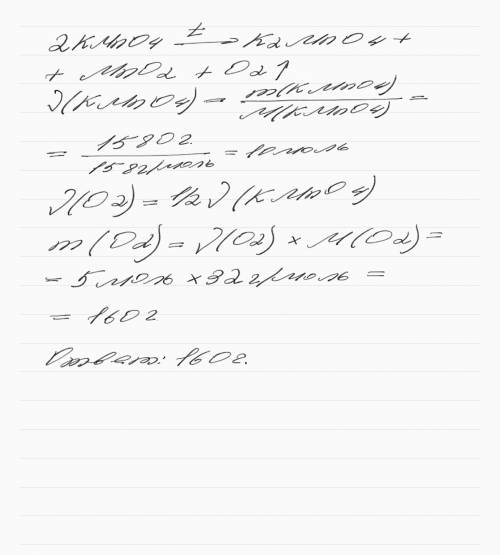 2KMnO4 t→ K2MnO4 +
+ MnO2 + O2↑
ν(KMnO4) = m(KMnO4)/M(KMnO4) =
= 1580г/158г/моль = 10моль
ν(O2) = 1/2 ν(KMnO4)
m(O2) = ν(O2) × M(O2) =
= 5моль × 32г/моль =
= 160г
Ответ: 160г.